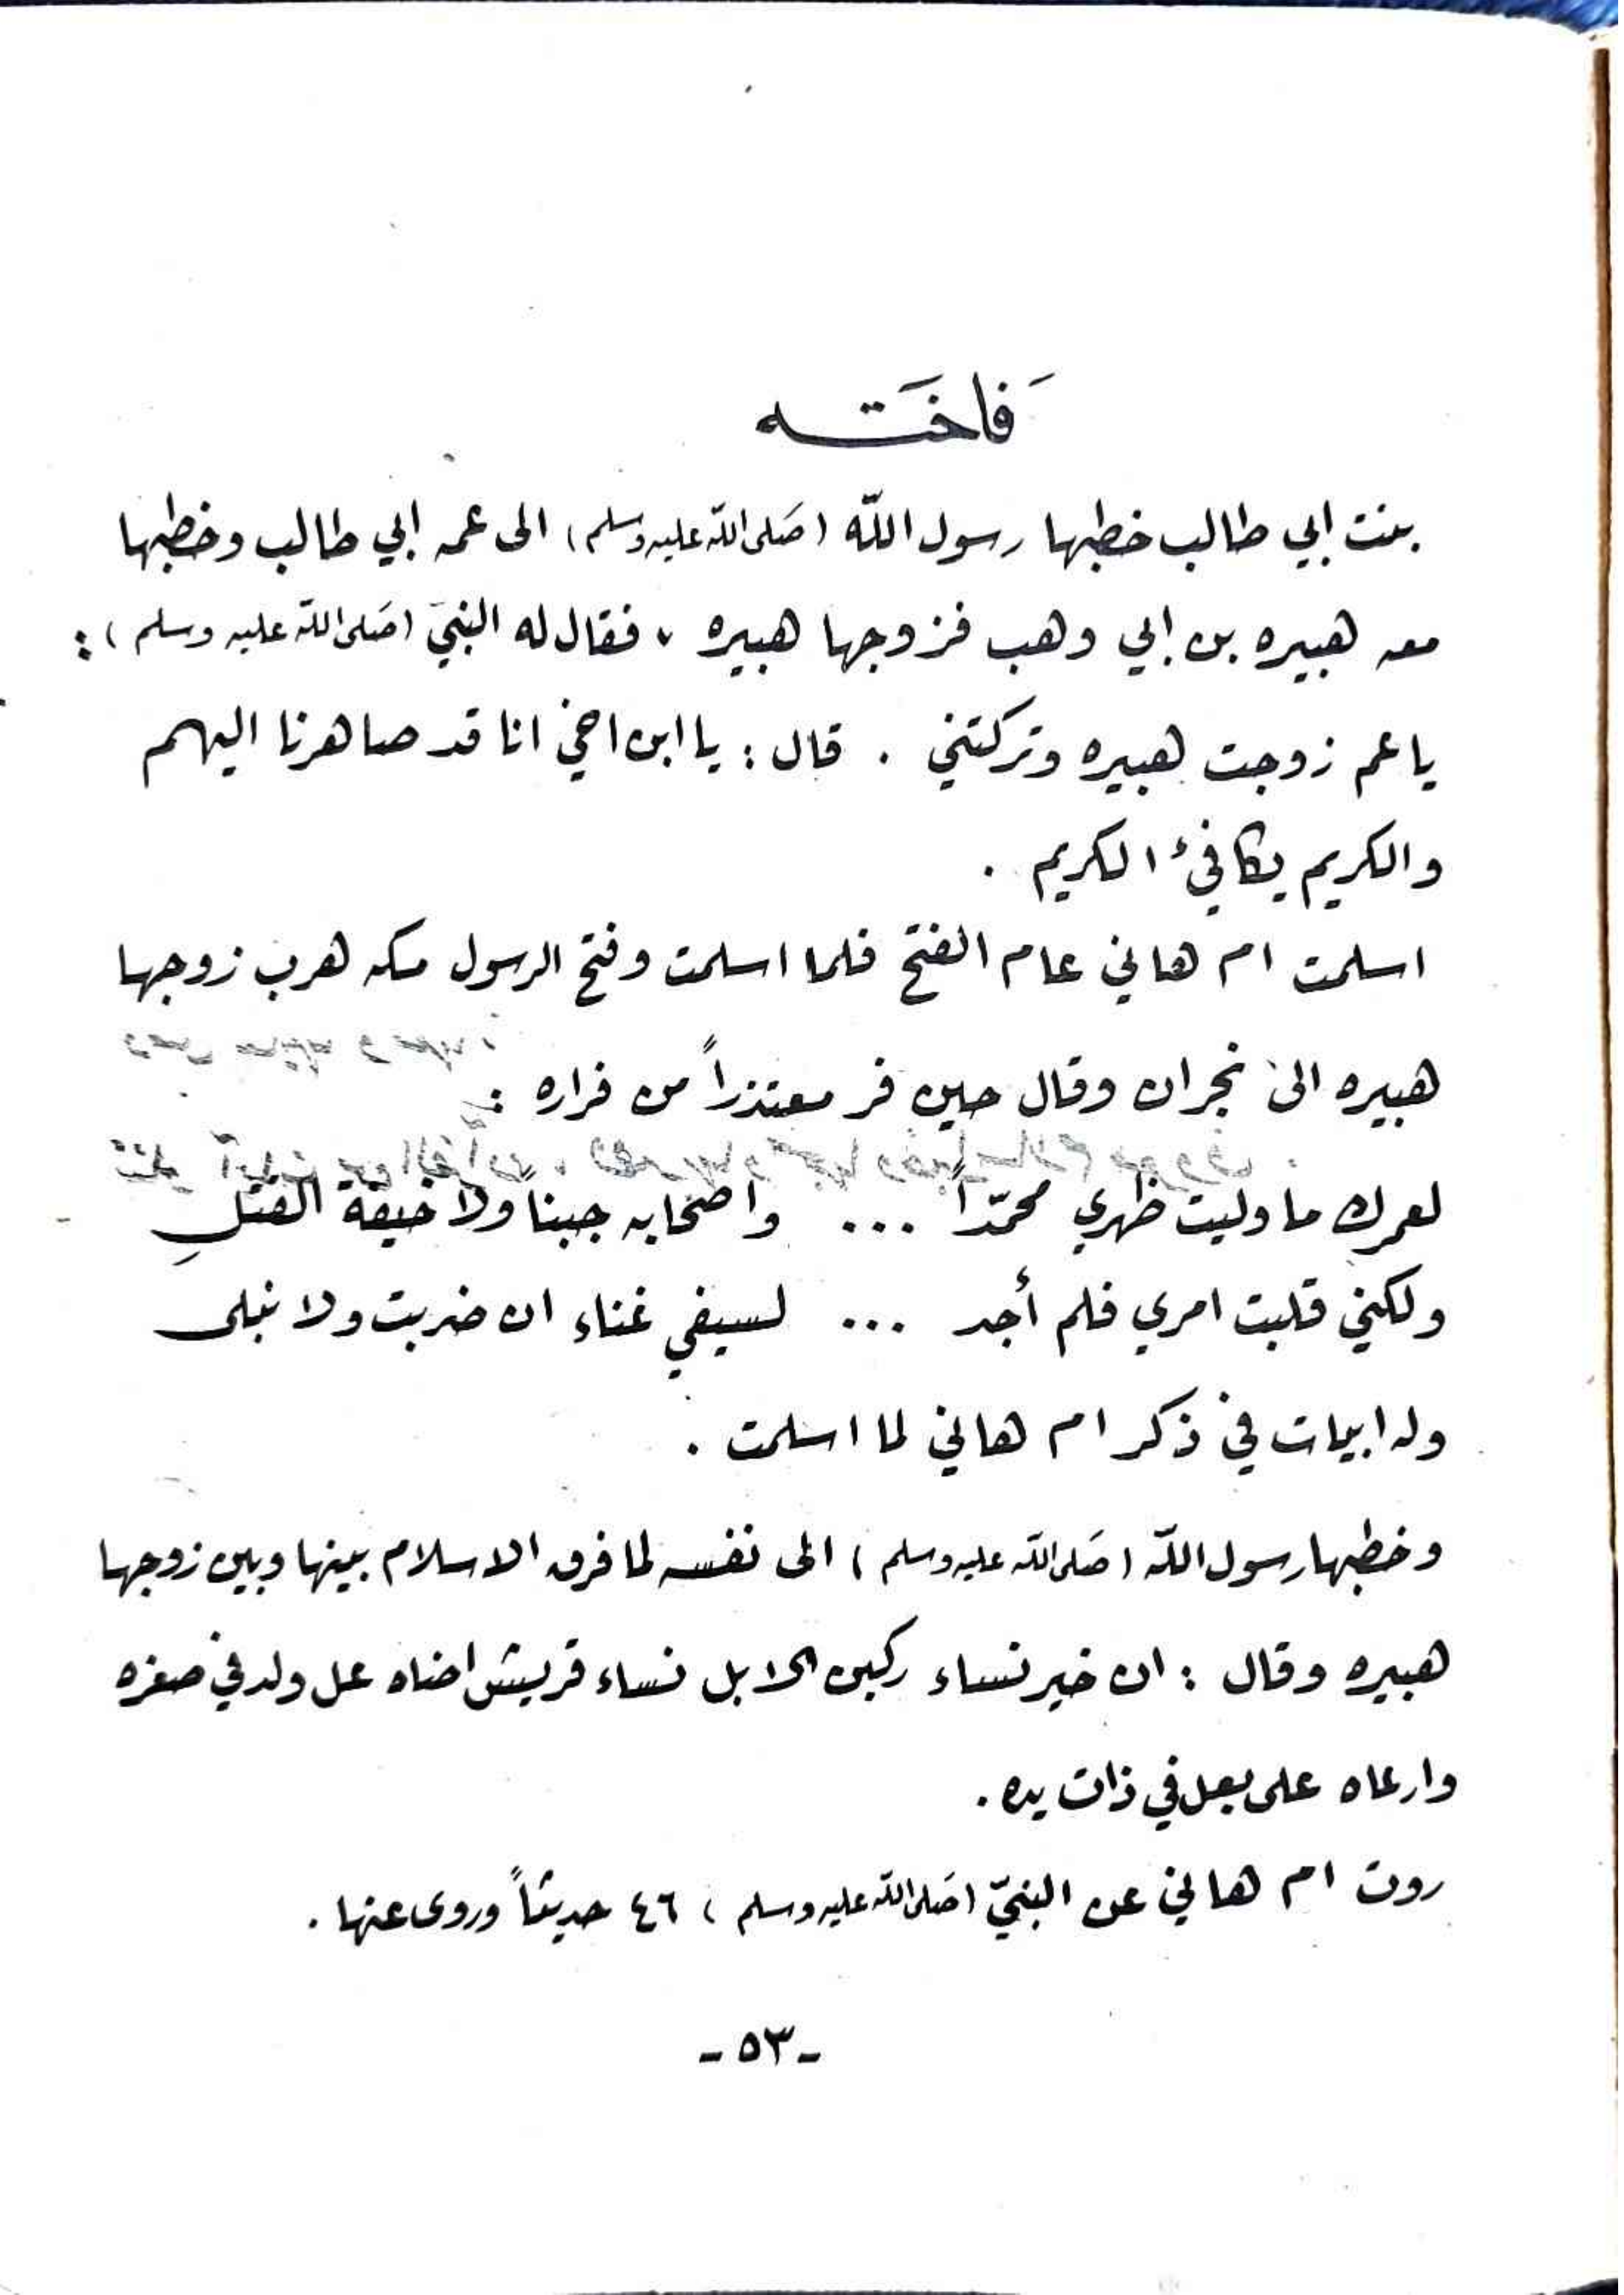 فَاخَتَه
بنت ابي طالب خطبها رسول اللّه (صَلى اللّه عليه وسلم) الى عمه ابي طالب وخطبها
معه هبيره بن ابي وهب فزوجها هبيره ، فقال له النبيّ (صَلى اللّه عليه وسلم) :
يا عم زوجت هبيره وتركتني . قال : يا ابن اخي انا قد صاهرنا اليهم
والكريم يكافئ الكريم .
اسلمت ام هاني عام الفتح فلما اسلمت وفتح الرسول مكه هرب زوجها
هبيره الى نجران وقال حين فر معتذراً من فراره :
لعمرك ما وليت ظهري محمّداً ... واصحابه جبناً ولا خيفة القتلِ
ولكني قلبت امري فلم أجد ... لسيفي غناء ان ضربت ولا نبلى
وله ابيات في ذكر ام هاني لما اسلمت .
وخطبها رسول اللّه (صَلى اللّه عليه وسلم) الى نفسه لما فرق الاسلام بينها وبين زوجها
هبيره وقال : ان خير نساء ركبن الابل نساء قريش احناه عل ولد في صغره
وارعاه على بعل في ذات يده .
روت ام هاني عن النبيّ (صَلى اللّه عليه وسلم) ٤٦ حديثاً وروى عنها .
- ٥٣ -